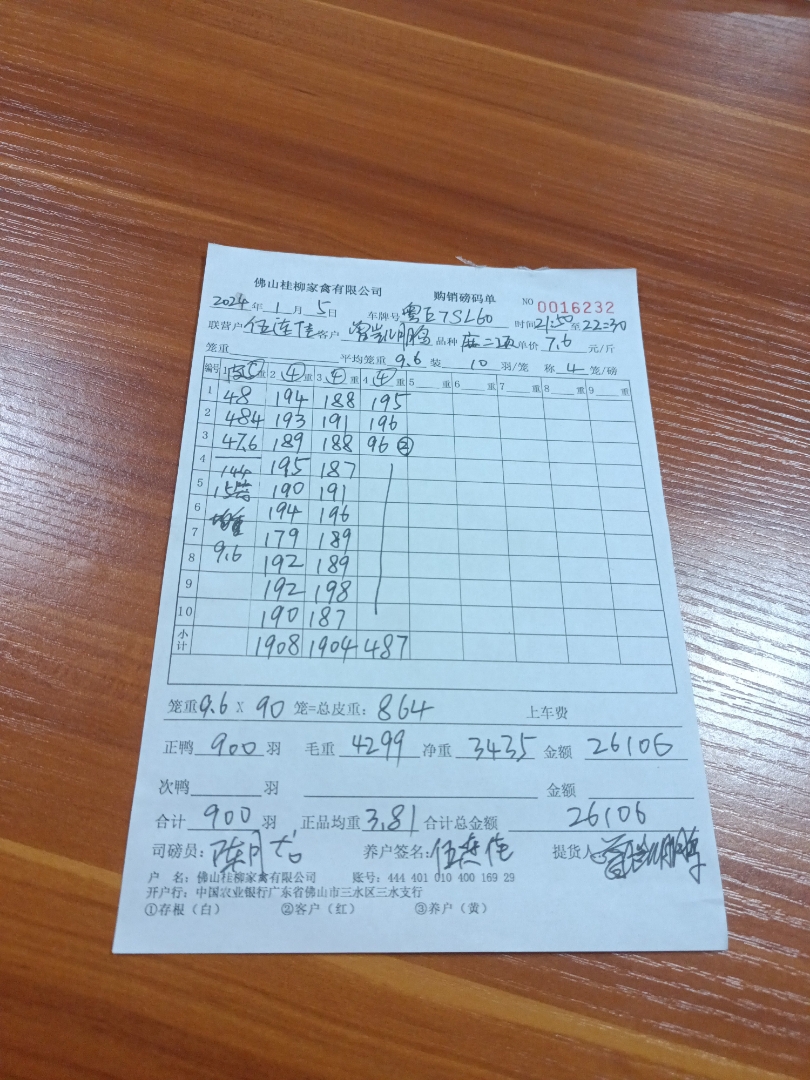 佛山桂柳家禽有限公司 购销磅码单 NO 0016232
2024年1月5日 车牌号粤E7SL60 时间21:50至22:30
联营户伍连佳客户曾凯鹏品种麻二 单价7.6元/斤
笼重 平均笼重9.6装10羽/笼 称4笼/磅
编号 1 15.5重 2 ④重 3 ④重 4 ④重 5 重 6 重 7 重 8 重 9 重
1 48 194 188 195
2 484 193 191 196
3 47.6 189 188 96②
4 144 195 187
5 15笼 190 191
6 均重 194 196
7 179 189
8 9.6 192 189
9 192 198
10 190 187
小计 1908 1904 487
笼重9.6X90笼=总皮重:864 上车费
正鸭900羽 毛重4299净重3435金额26106
次鸭 羽 金额
合计900羽,正品均重3.81合计总金额26106
司磅员: 养户签名:伍连佳 提货人:曾凯鹏
户 名:佛山桂柳家禽有限公司 账号:444 401 010 400 169 29
开户行:中国农业银行广东省佛山市三水区三水支行
①存根(白) ②客户(红) ③养户(黄)